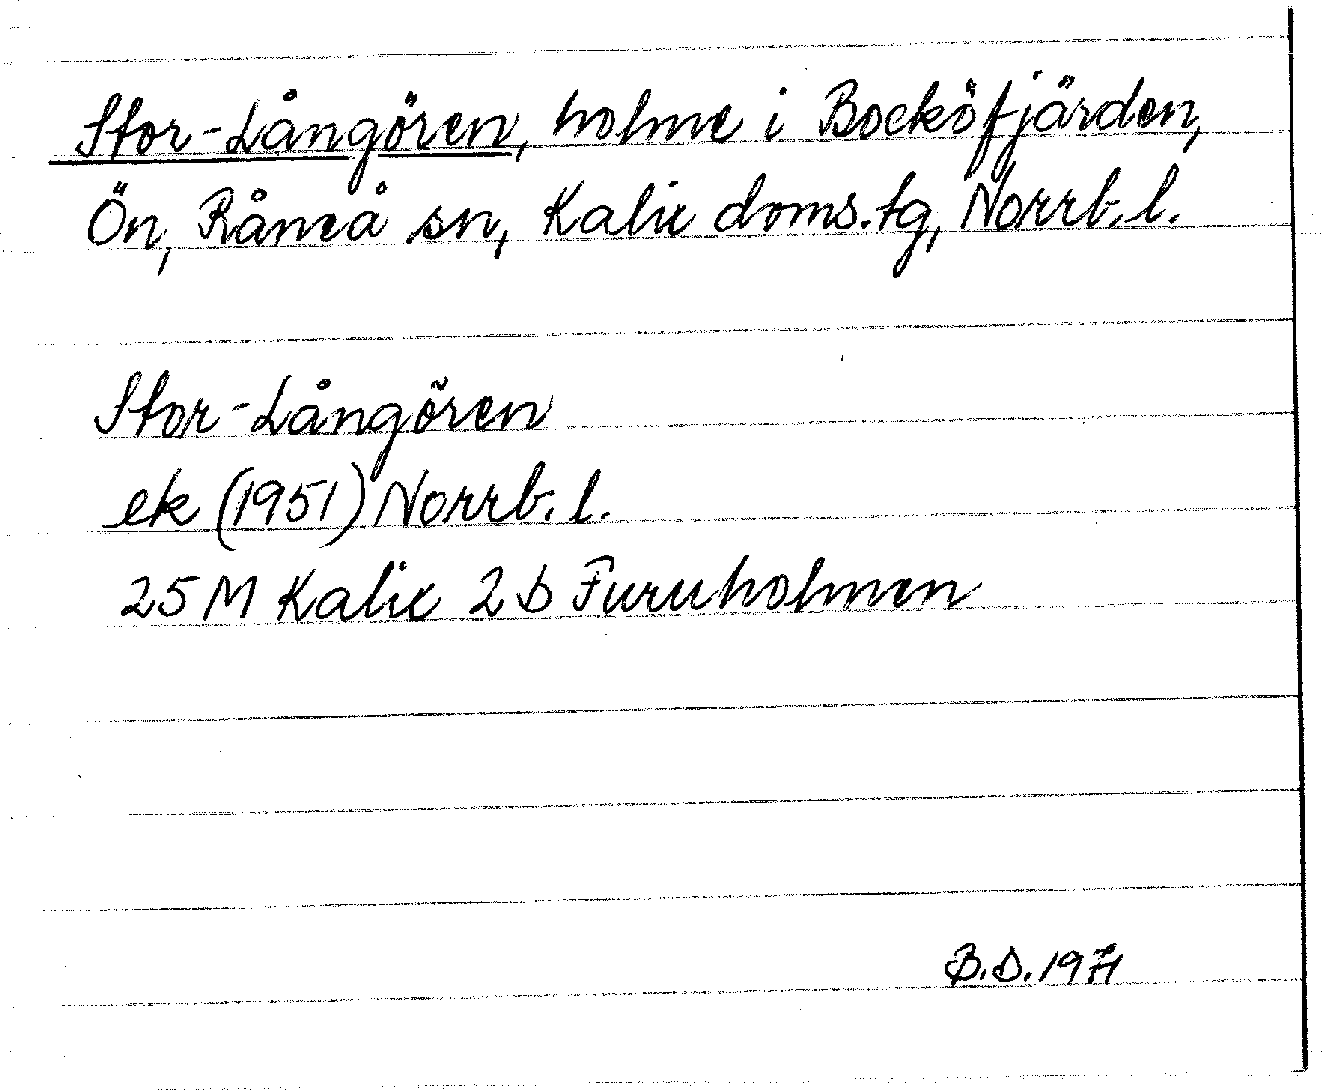 Stor-Långören, holme i Bocköfjärden,
Ön, Råneå sn, Kalix doms.tg, Norrb. l.
Stor-Långören
ek (1951) Norrb. l.
25 M Kalix 2 b Furuholmen
B.D. 1971